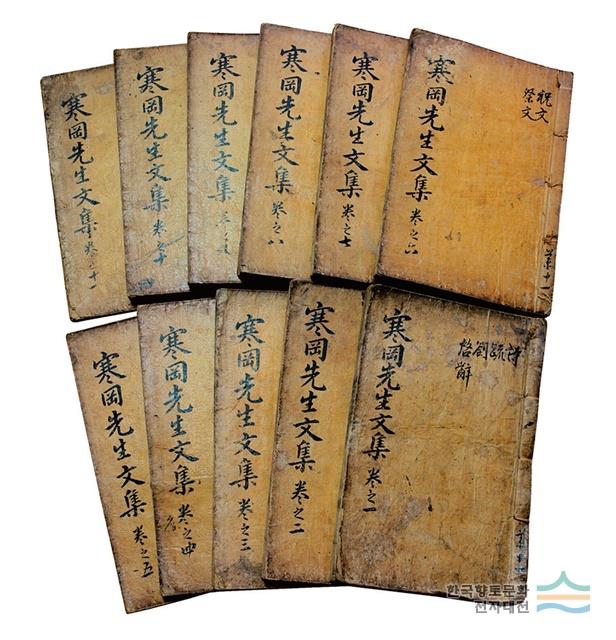 寒岡先生文集 卷之六
祝文
祭文
共十一
寒岡先生文集 卷之七
寒岡先生文集 卷之八
寒岡先生文集 卷之
寒岡先生文集 卷之十
寒岡先生文集 卷之十一
寒岡先生文集 卷之一
詩
疏
劄
啓
辭
寒岡先生文集 卷之二
寒岡先生文集 卷之三
寒岡先生文集 卷之四
寒岡先生文集 卷之五
한국향토문화
전자대전